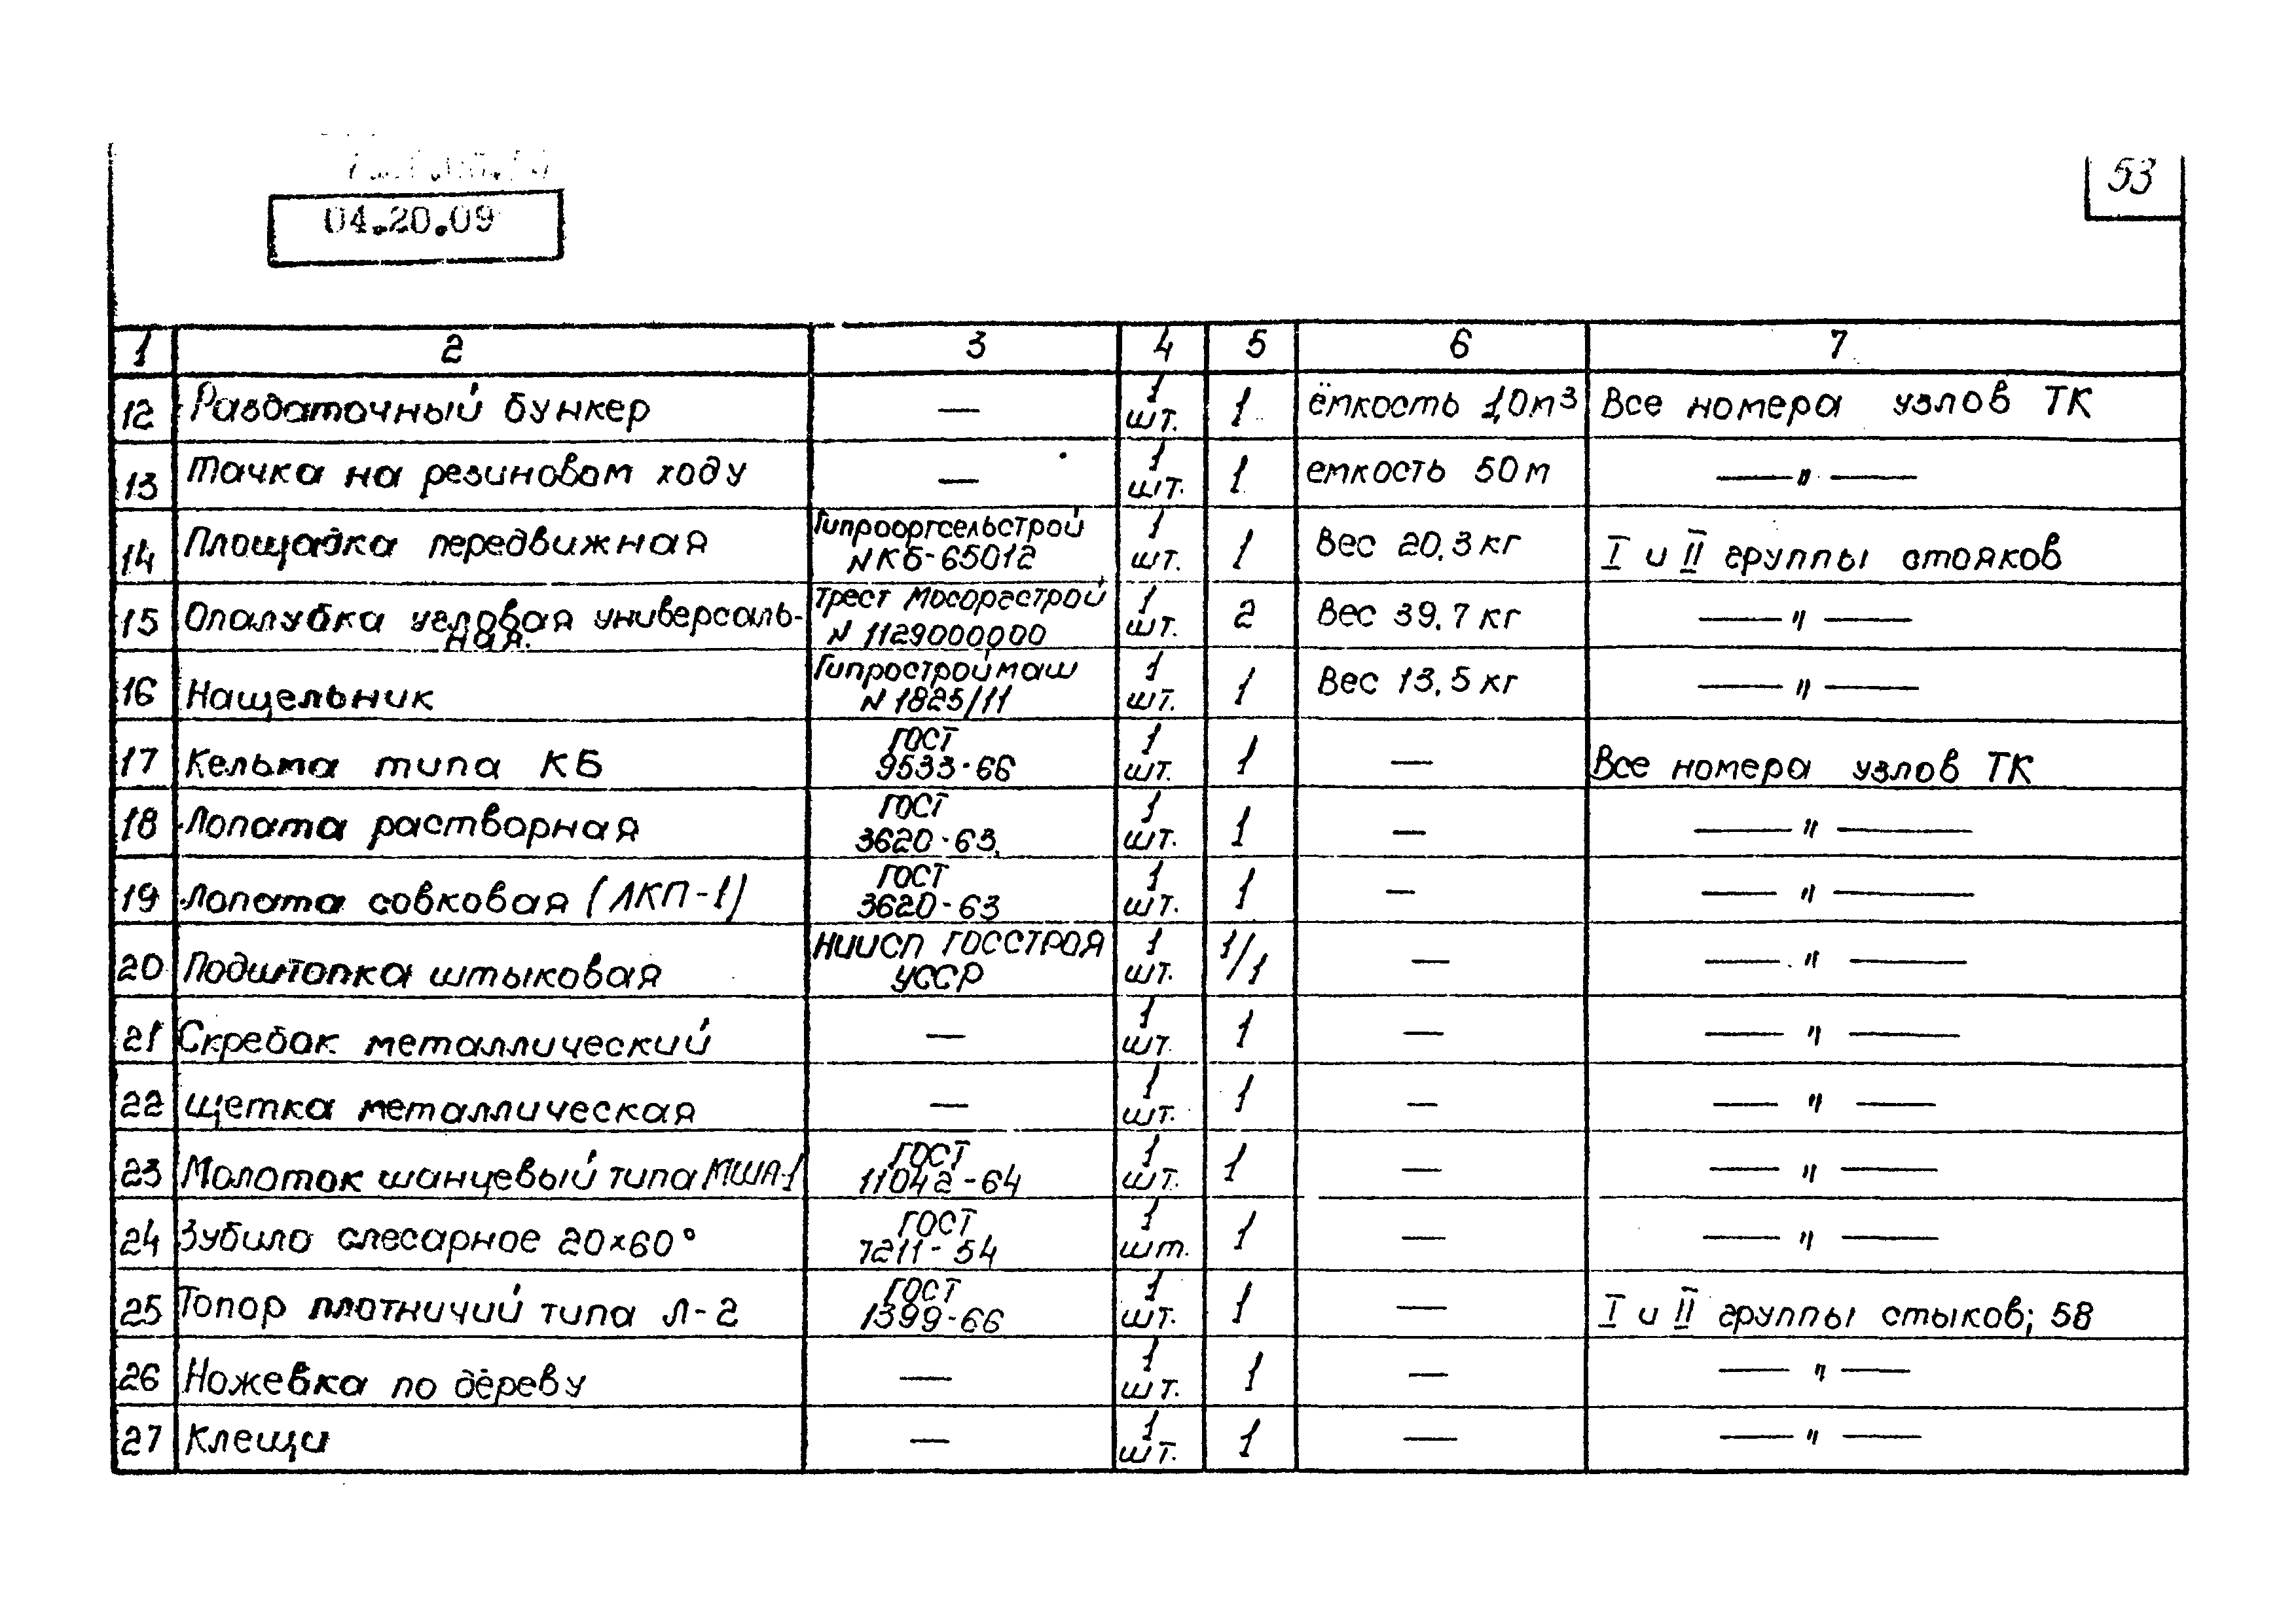 53
04.20.09
1 2 3 4 5 6 7
12 Раздаточный бункер — 1 шт. 1 ёмкость 1,0м³ Все номера узлов ТК
13 Тачка на резиновом ходу — 1 шт. 1 емкость 50м —"—
14 Площадка передвижная Гипрооргсельстрой N КБ-65012 1 шт. 1 Вес 20,3 кг I и II группы стояков
15 Опалубка угловая универсаль-ная. Трест Мосоргстрой N 1129000000 1 шт. 2 Вес 39,7 кг —"—
16 Нащельник Гипростроймаш N 1825/11 1 шт. 1 Вес 13,5 кг —"—
17 Кельма типа КБ ГОСТ 9533-66 1 шт. 1 — Все номера узлов ТК
18 Лопата растворная ГОСТ 3620-63 1 шт. 1 — —"—
19 Лопата совковая (ЛКП-1) ГОСТ 3620-63 1 шт. 1 — —"—
20 Подштопка штыковая НИИСП ГОССТРОЯ УССР 1 шт. 1/1 — —"—
21 Скребок металлический — 1 шт. 1 — —"—
22 щетка металлическая — 1 шт. 1 — —"—
23 Молоток шанцевый типа МША-1 ГОСТ 11042-64 1 шт. 1 — —"—
24 Зубило слесарное 20×60° ГОСТ 7211-54 1 шт. 1 — —"—
25 Топор плотничий типа Л-2 ГОСТ 1399-66 1 шт. 1 — I и II группы стыков; 58
26 Ножевка по дереву — 1 шт. 1 — —"—
27 Клещи — 1 шт. 1 — —"—